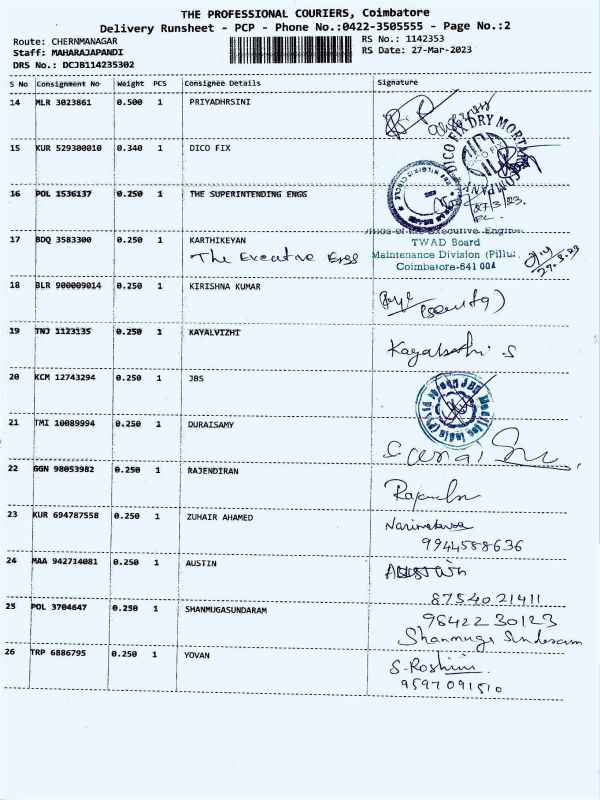 THE PROFESSIONAL COURIERS, Coimbatore
Delivery Runsheet - PCP - Phone No.:0422-3505555 - Page No.:2
Route: CHERNMANAGAR RS No.: 1142353
Staff: MAHARAJAPANDI RS Date: 27-Mar-2023
DRS No.: DCJB114235302
S No Consignment No Weight PCS Consignee Details Signature
14 MLR 3023861 0.500 1 PRIYADHRSINI
15 KUR 529300010 0.340 1 DICO FIX
DICO FIX DRY MORTAR
COMPANY
DICO FIX
27/3/23
16 POL 1536137 0.250 1 THE SUPERINTENDING ENGG
17 BDQ 3583300 0.250 1 KARTHIKEYAN
The Executive Engg
Office of the Executive Engineer
TWAD Board
Maintenance Division (Pillur
Coimbatore-641 004
27.3.23
18 BLR 900009014 0.250 1 KIRISHNA KUMAR
19 TNJ 1123135 0.250 1 KAYALVIZHI
20 KCM 12743294 0.250 1 JBS
21 TMI 10089994 0.250 1 DURAISAMY
22 GGN 98053982 0.250 1 RAJENDIRAN
23 KUR 694787558 0.250 1 ZUHAIR AHAMED
9944588636
24 MAA 942714081 0.250 1 AUSTIN
8754021411
25 POL 3704647 0.250 1 SHANMUGASUNDARAM
9842230123
Shanmuga Sundaram
26 TRP 6886795 0.250 1 YOVAN
S. Roshini
9597091510